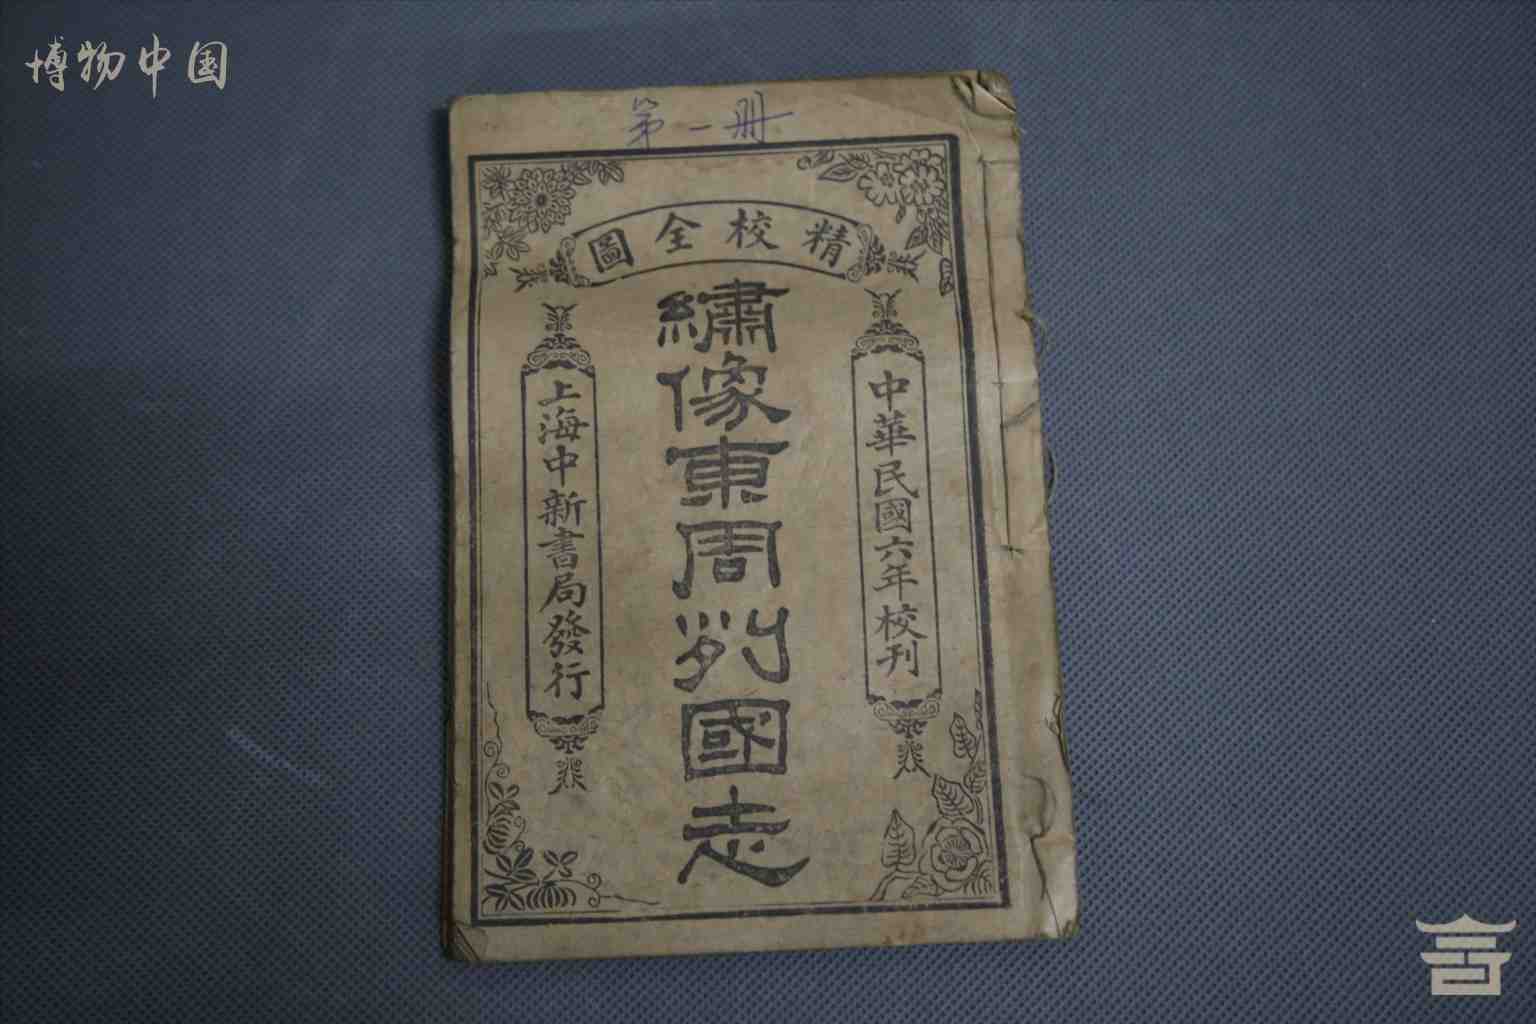 博物中国
第一册
精校全圖
中華民國六年校刊
繡像東周列國志
上海中新書局發行